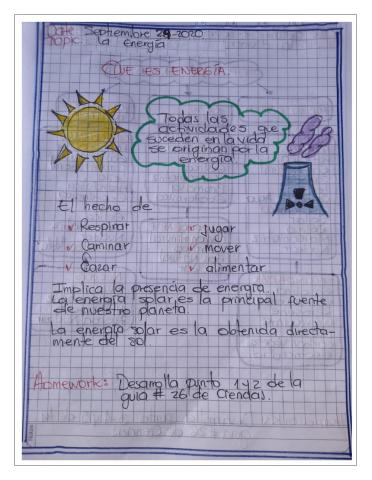 Date: Septiembre 29-2020
Topic: La energía
QUE ES ENERGÍA.
Todas las
actividades que
suceden en la vida
se originan por la
energía
El hecho de
✓ Respirar
✓ Caminar
✓ Cazar
✓ jugar
✓ mover
✓ alimentar
Implica la presencia de energía.
La energía solar es la principal fuente
de nuestro planeta.
La energía solar es la obtenida directa-
mente del sol.
Homework: Desarrolla punto 1 y 2 de la
guia # 26 de Ciencias.